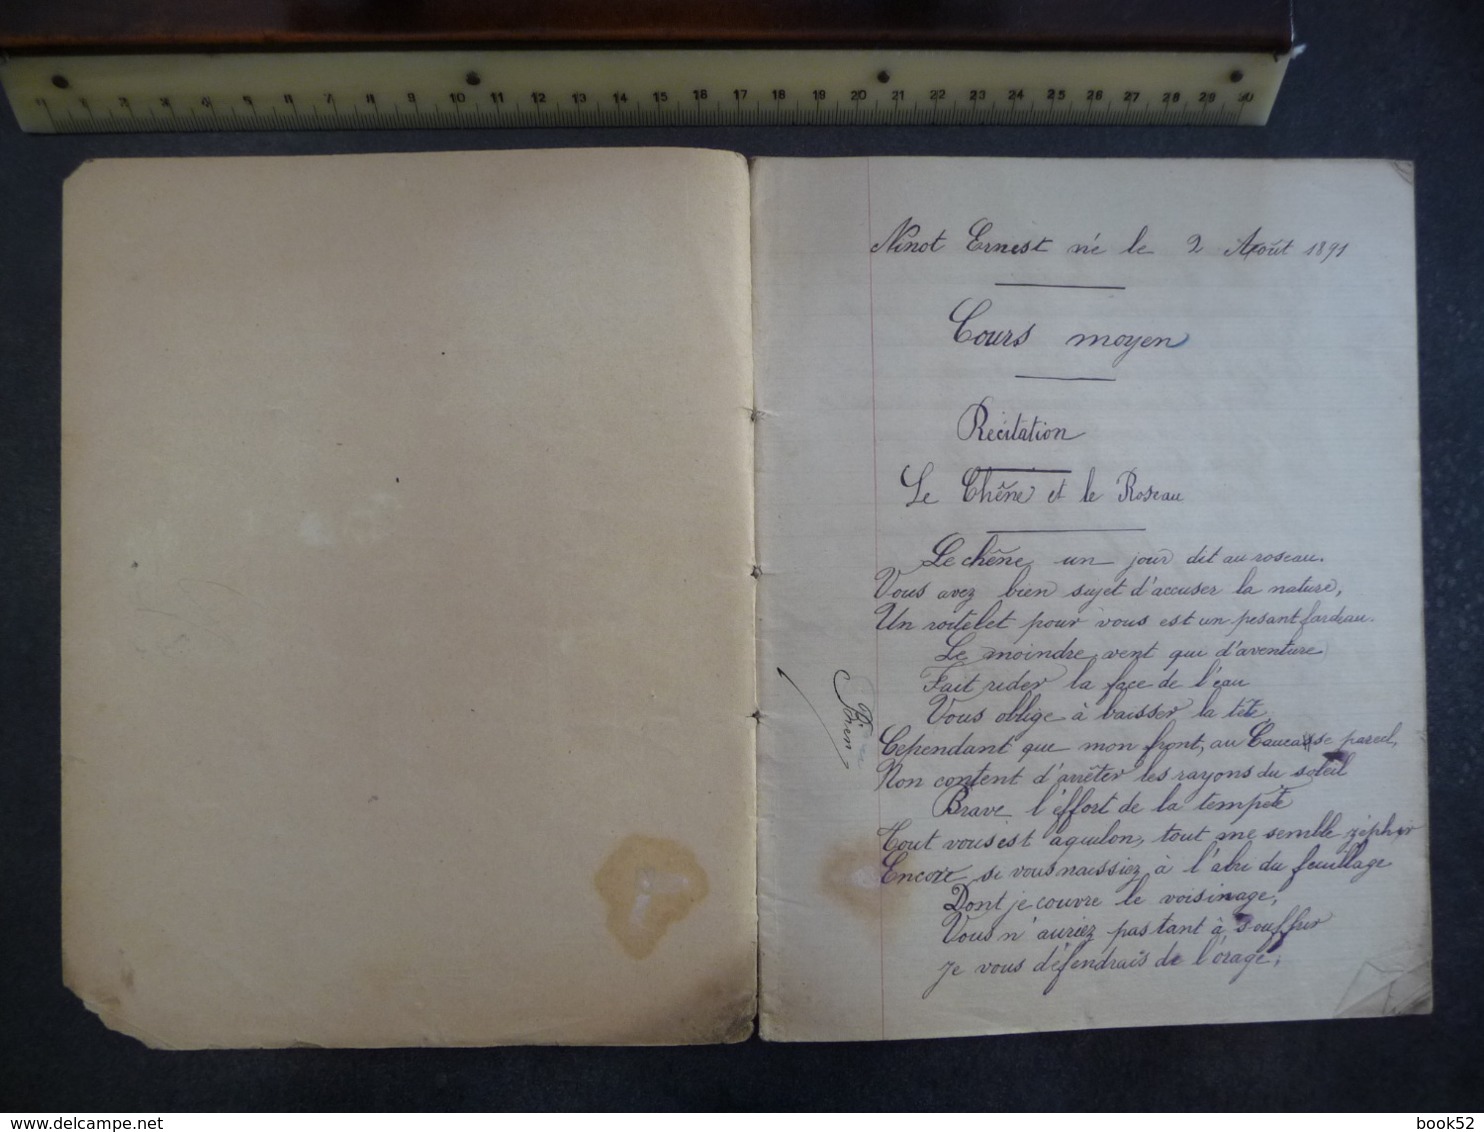 1 2 3 4 5 6 7 8 9 10 11 12 13 14 15 16 17 18 19 20 21 22 23 24 25 26 27 28 29 30
Ninot Ernest né le 2 Août 1891
Cours moyen
Récitation
Le Chêne et le Roseau
Le chêne un jour dit au roseau.
Vous avez bien sujet d'accuser la nature,
Un roitelet pour vous est un pesant fardeau.
Le moindre vent qui d'aventure
Fait rider la face de l'eau
Vous oblige à baisser la tête,
Cependant que mon front, au Caucase pareil,
Non content d'arrêter les rayons du soleil
Brave l'effort de la tempête
Tout vous est aquilon, tout me semble zéphir
Encore si vous naissiez à l'abri du feuillage
Dont je couvre le voisinage,
Vous n'auriez pas tant à souffrir
Je vous défendrais de l'orage;
Bien
book52